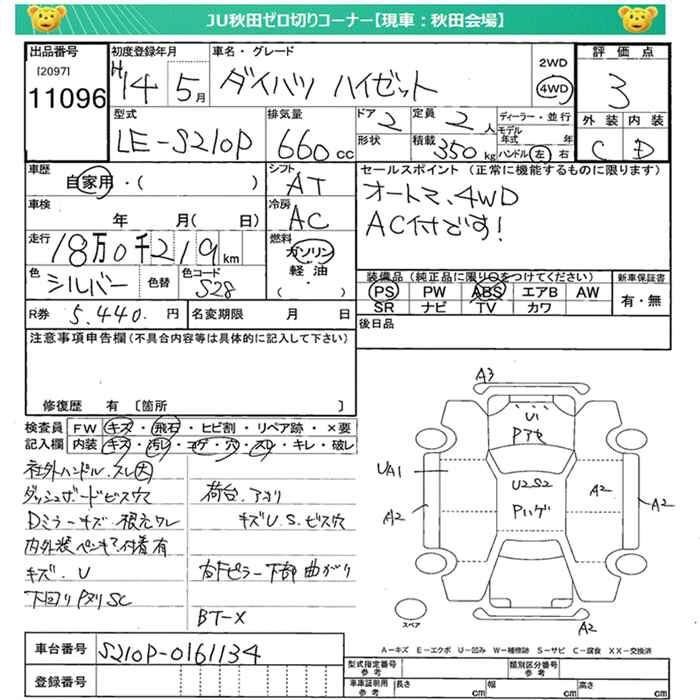 JU秋田ゼロ切りコーナー【現車：秋田会場】
出品番号 初度登録年月 車名・グレード 2WD 評価点
[2097]
11096 H14 5月 ダイハツ ハイゼット 4WD 3
型式 排気量 ドア 2 定員 2人 ディーラー・並行 外装 内装
モデル年式 年
LE-S210P 660cc 形状 積載 350kg ハンドル 左 右 C D
車歴 シフト セールスポイント（正常に機能するものに限ります）
自家用・（ ） AT オートマ、4WD
車検 冷房 AC付です!
年 月（ 日） AC
走行 燃料
18万0千219km ガソリン
色 色替 色コード 軽油 装備品（純正品に限り○をつけてください） 新車保証書
シルバー S28 ・（ ） PS PW ABS エアB AW 有・無
SR ナビ TV カワ
R券 5,440.円 名変期限 月 日 後日品
注意事項申告欄（不具合内容等は具体的に記入して下さい）
修復歴 有 〔箇所 〕
検査員 FW キズ・飛石・ヒビ割・リペア跡・×要
記入欄 内装 キズ・汚レ・コゲ・穴・スレ・キレ・破レ
社外ハンドル.スレ因
ダッシュボードビス穴 荷台.アオリ
Dミラーキズ.根元ワレ キズU.S.ビス穴
内外装ペンキ?付着有
キズ.U 右Fピラー下部曲がり
下回りPヌリSC
BT-X
A3
U1
Pアセ
UA1 U2S2 A2
A2 Pハゲ A2
スペア A2
A－キズ E－エクボ U－凹み W－補修跡 S－サビ C－腐食 XX－交換済
車台番号 S210P-0161134
登録番号
型式指定番号 参考 類別区分番号 参考
車庫証明用 参考 長さ cm 幅 cm 高さ cm